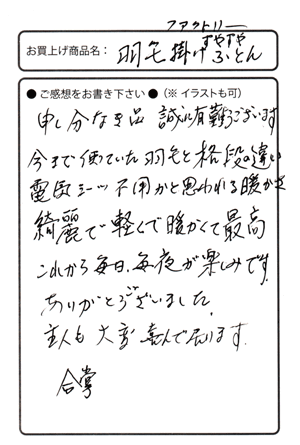 ファクトリー
お買上げ商品名： 羽毛掛けすやすやふとん
● ご感想をお書き下さい ● (※ イラストも可)
申し分なき品 誠に有難うございます
今まで使っていた羽毛と格段の違い
電気シーツ不用かと思われる暖かさ
綺麗で軽くて暖かくて最高
これから毎日、毎夜が楽しみです。
ありがとうございました。
主人も大変喜んで居ります。
合掌